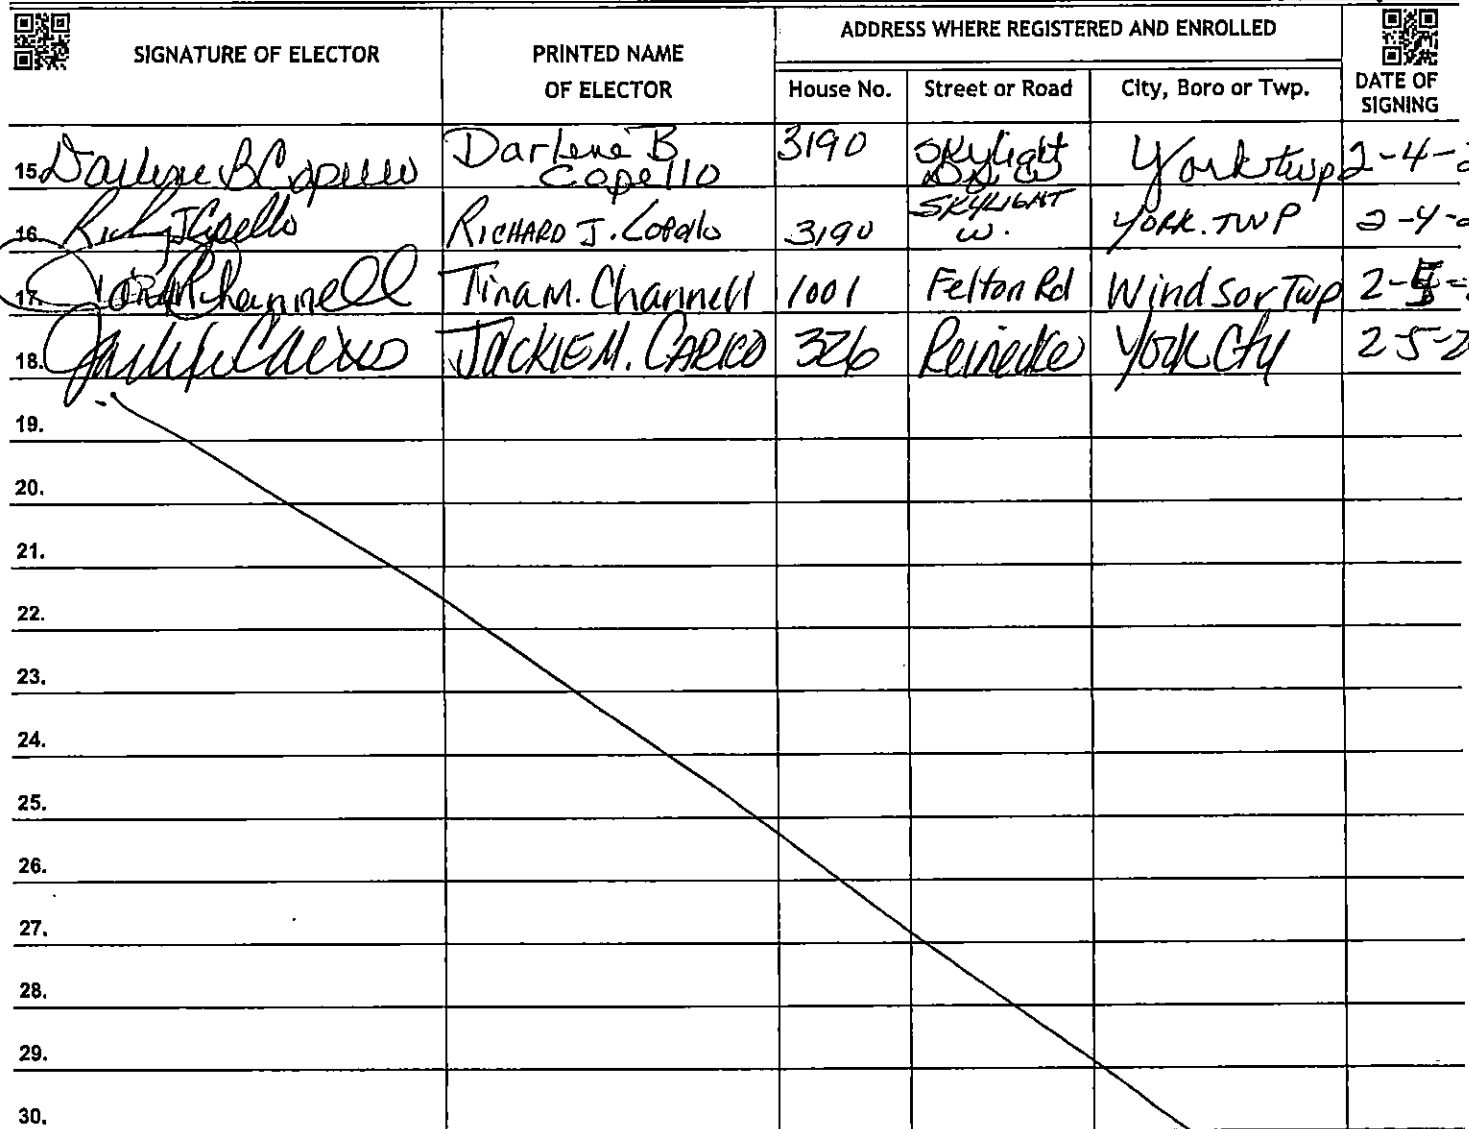 SIGNATURE OF ELECTOR PRINTED NAME OF ELECTOR ADDRESS WHERE REGISTERED AND ENROLLED
House No. Street or Road City, Boro or Twp. DATE OF SIGNING
15. Darlene B Copello Darlene B Copello 3190 Skylight York twp 2-4-2
16. Richard J. Copello 3190 SKYLIGHT W. YORK. TWP 2-4-2
17. Tina M Channell Tina M. Channell 1001 Felton Rd Windsor Twp 2-5-
18. JACKIE M. CARICO 326 Reinecke York City 2-5-2
19.
20.
21.
22.
23.
24.
25.
26.
27.
28.
29.
30.